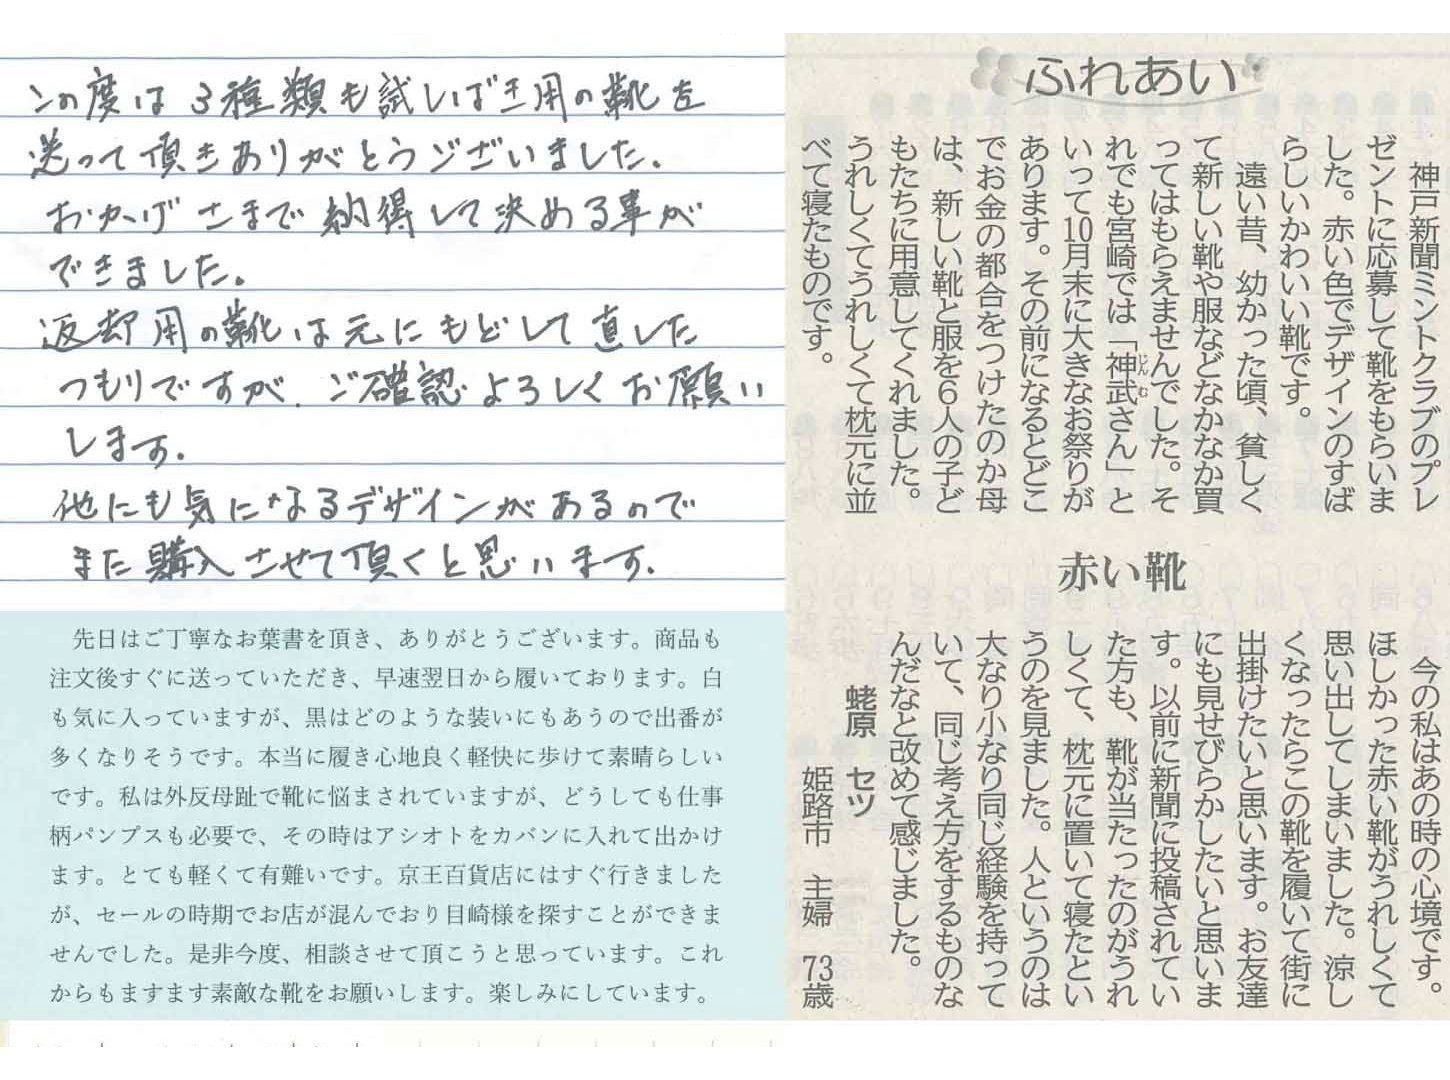 この度は3種類も試しばき用の靴を
送って頂きありがとうございました.
おかげさまで納得して決める事が
できました。
返却用の靴は元にもどして直した
つもりですが、ご確認よろしくお願い
します.
他にも気になるデザインがあるので
また購入させて頂くと思います.
先日はご丁寧なお葉書を頂き、ありがとうございます。商品も
注文後すぐに送っていただき、早速翌日から履いております。白
も気に入っていますが、黒はどのような装いにもあうので出番が
多くなりそうです。本当に履き心地良く軽快に歩けて素晴らしい
です。私は外反母趾で靴に悩まされていますが、どうしても仕事
柄パンプスも必要で、その時はアシオトをカバンに入れて出かけ
ます。とても軽くて有難いです。京王百貨店にはすぐ行きました
が、セールの時期でお店が混んでおり目崎様を探すことができま
せんでした。是非今度、相談させて頂こうと思っています。これ
からもますます素敵な靴をお願いします。楽しみにしています。
ふれあい
神戸新聞ミントクラブのプレ
ゼントに応募して靴をもらいま
した。赤い色でデザインのすば
らしいかわいい靴です。
遠い昔、幼かった頃、貧しく
て新しい靴や服などなかなか買
ってはもらえませんでした。そ
れでも宮崎では「神武さん」と
じんむ
いって10月末に大きなお祭りが
あります。その前になるとどこ
でお金の都合をつけたのか母
は、新しい靴と服を6人の子ど
もたちに用意してくれました。
うれしくてうれしくて枕元に並
べて寝たものです。
赤い靴
今の私はあの時の心境です。
ほしかった赤い靴がうれしくて
思い出してしまいました。涼し
くなったらこの靴を履いて街に
出掛けたいと思います。お友達
にも見せびらかしたいと思いま
す。以前に新聞に投稿されてい
た方も、靴が当たったのがうれ
しくて、枕元に置いて寝たとい
うのを見ました。人というのは
大なり小なり同じ経験を持って
いて、同じ考え方をするものな
んだなと改めて感じました。
蛯原 セツ
姫路市 主婦 73歳